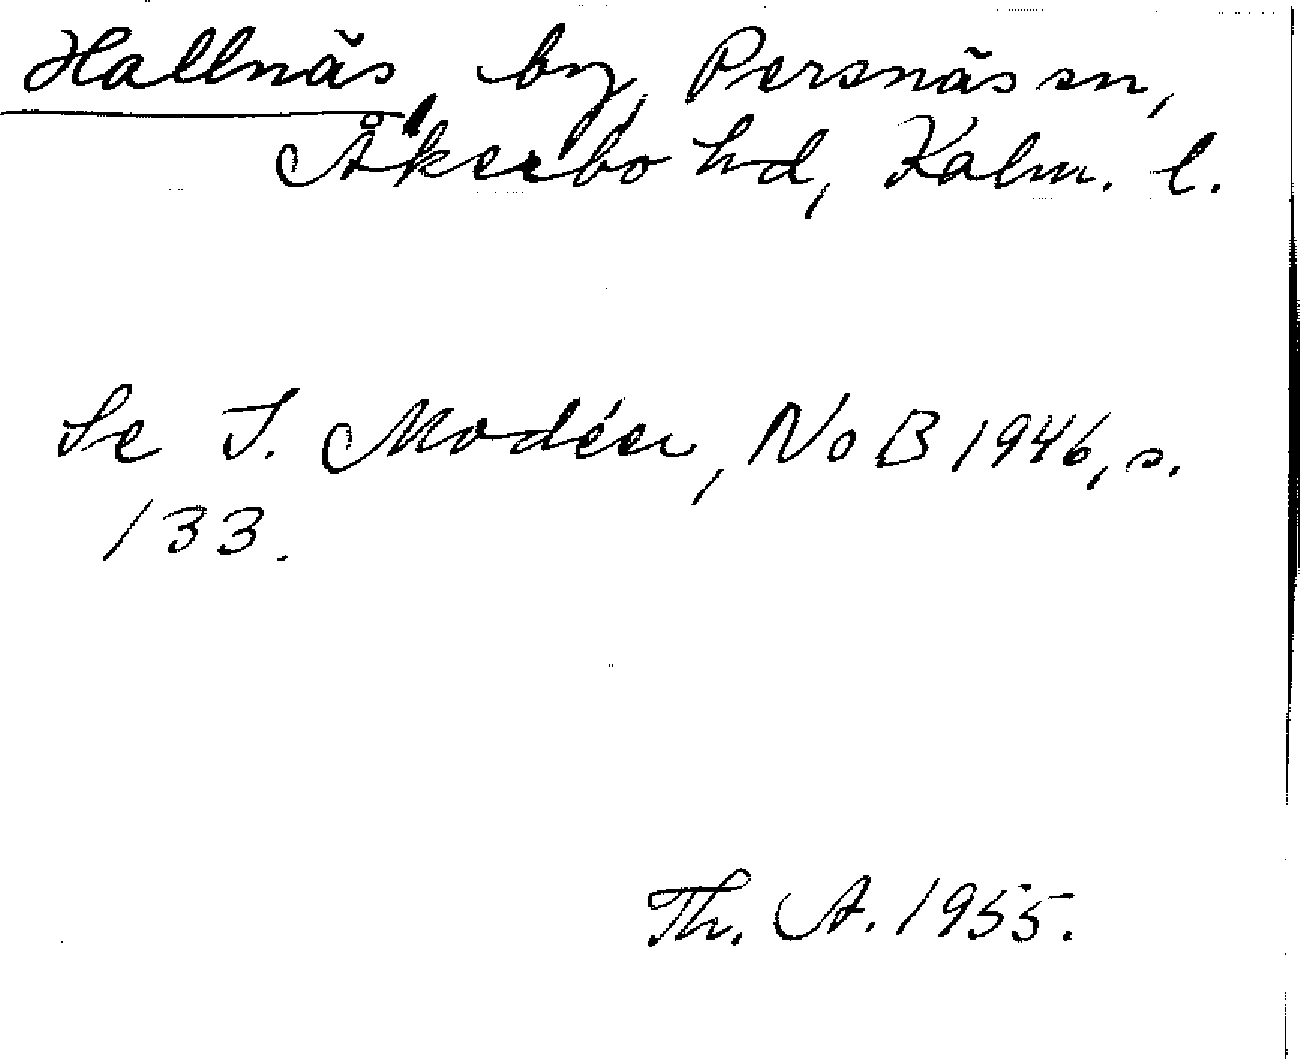 Hallnäs, by, Persnäs sn,
Åkerbo hd, Kalm. l.
Se I. Modéer, NoB 1946, s.
133.
Th. A. 1955.